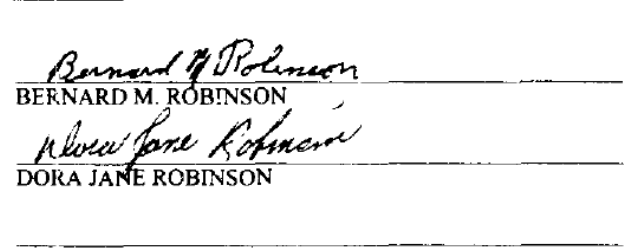 Bernard M Robinson
BERNARD M. ROBINSON
Dora Jane Robinson
DORA JANE ROBINSON